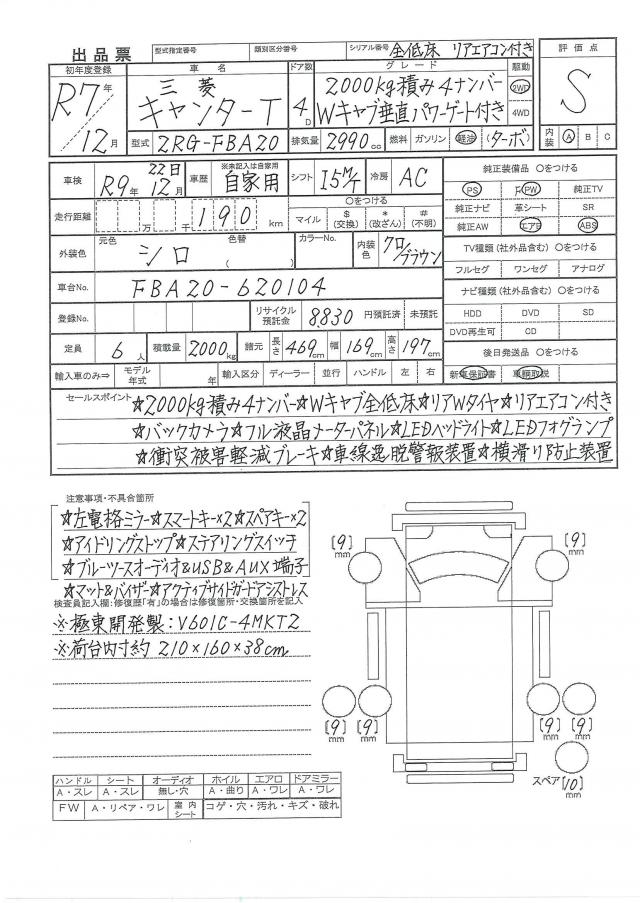 出品票 型式指定番号 類別区分番号 シリアル番号 全低床 リアエアコン付き
初年度登録 車名 ドア数 グレード 駆動 評価点
R7年 三菱 2000kg積み4ナンバー 2WD S
キャンターT 4D Wキャブ垂直パワーゲート付き 4WD
12月 型式 2RG-FBA20 排気量 2990cc 燃料 ガソリン 軽油 (ターボ) 内装 A B C
車検 R9年 22日 12月 車歴 ※未記入は自家用 自家用 シフト I5M/T 冷房 AC 純正装備品 ○をつける
PS PW 純正TV
走行距離 万 千 190 km ○をつける マイル $(交換) *(改ざん) #(不明) 純正ナビ 革シート SR
純正AW エアB ABS
外装色 元色 シロ 色替 ( ) カラーNo. 内装色 クロ/ブラウン TV種類(社外品含む) ○をつける
フルセグ ワンセグ アナログ
車台No. FBA20-620104 ナビ種類(社外品含む) ○をつける
登録No. リサイクル預託金 8,830 円預託済 未預託 HDD DVD SD
DVD再生可 CD
定員 6人 積載量 2000kg 諸元 長さ 469cm 幅 169cm 高さ 197cm 後日発送品 ○をつける
輸入車のみ⇒ モデル年式 年 輸入区分 ディーラー 並行 ハンドル 左 右 新車保証書 車輌取説
セールスポイント ☆2000kg積み4ナンバー☆Wキャブ全低床☆リアWタイヤ☆リアエアコン付き
☆バックカメラ☆フル液晶メーターパネル☆LEDヘッドライト☆LEDフォグランプ
☆衝突被害軽減ブレーキ☆車線逸脱警報装置☆横滑り防止装置
注意事項・不具合箇所
☆左電格ミラー☆スマートキー×2☆スペアキー×2
☆アイドリングストップ☆ステアリングスイッチ
☆ブルーツースオーディオ&USB&AUX端子
☆マット&バイザー☆アクティブサイドガードアシストレス
検査員記入欄:修復歴「有」の場合は修復箇所・交換箇所を記入
※極東開発製:V601C-4MKT2
※荷台内寸約 210×160×38cm
[9]mm [9]mm
[9]mm [9]mm [9]mm [9]mm
スペア [10]mm
ハンドル シート オーディオ ホイル エアロ ドアミラー
A・スレ A・スレ 無し・穴 A・曲り A・ワレ A・ワレ
FW A・リペア・ワレ 室内シート コゲ・穴・汚れ・キズ・破れ